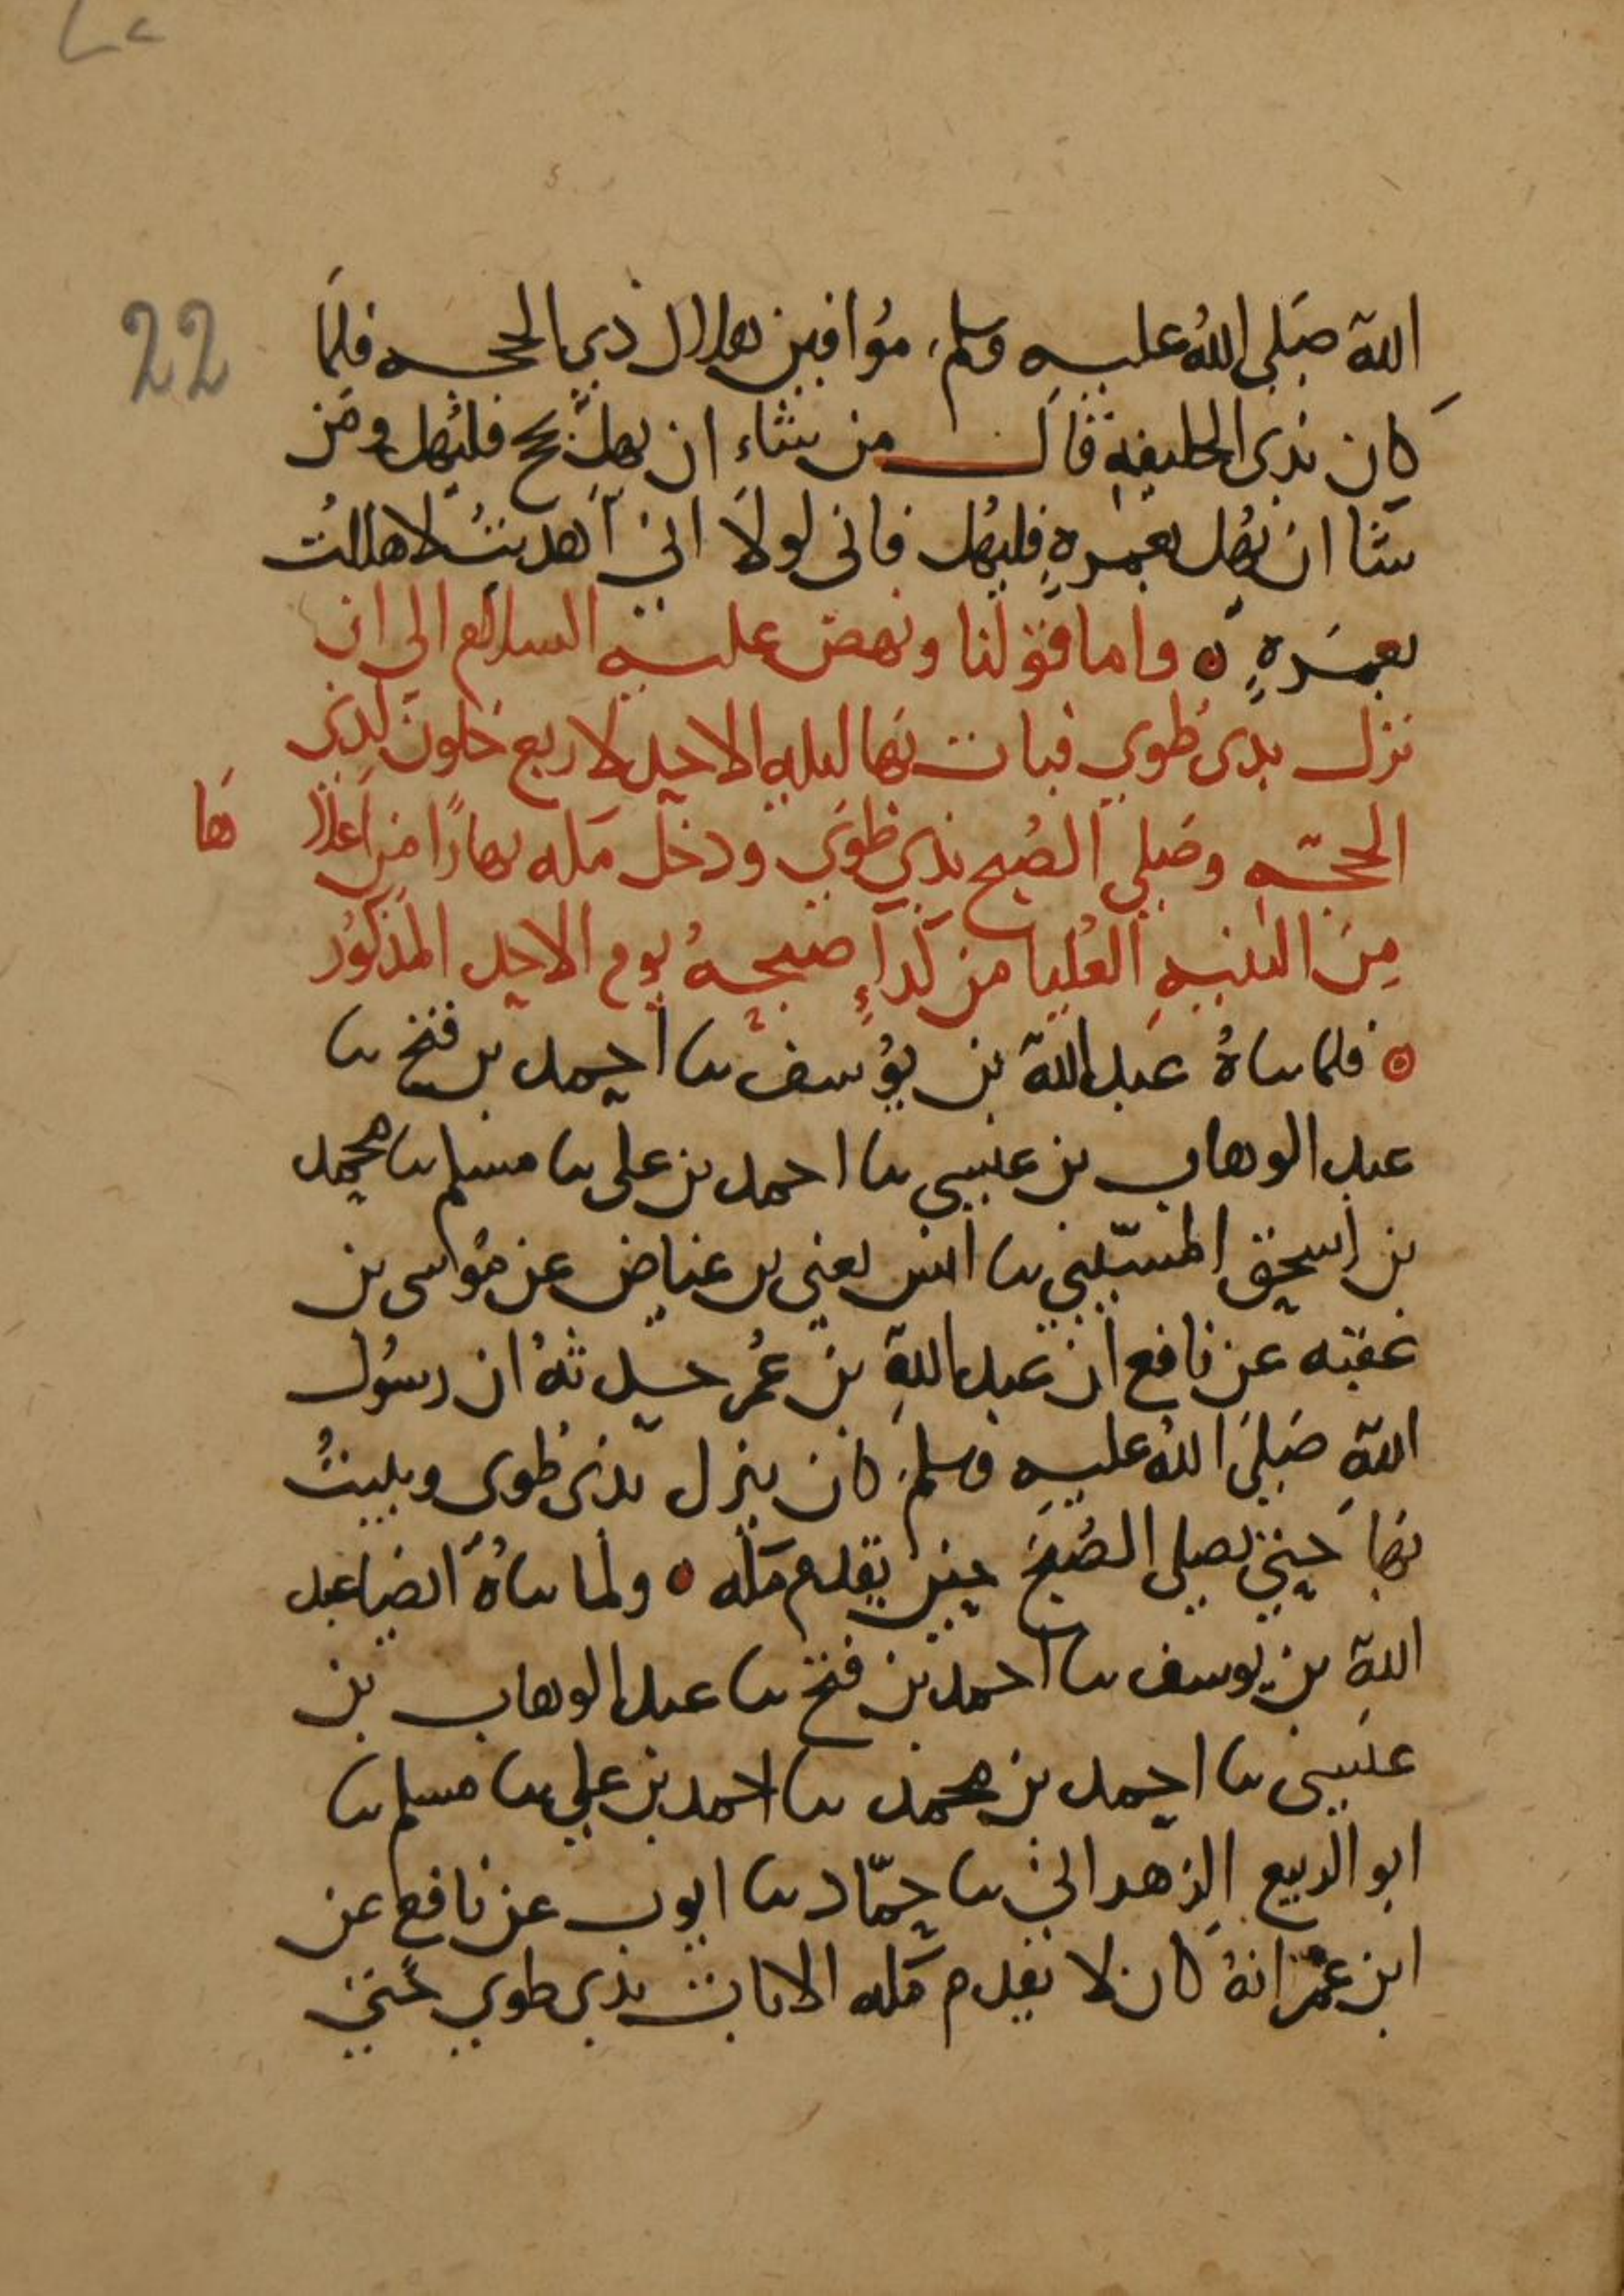 22
الله صَلى اللهُ عليه وسلم مُوافين هلال ذي الحجه فلمَّا
كان بذى الحليفة قال من شاء ان يهلَّ بحج فليُهل ومَن
شا ان يُهل بعمرةٍ فليُهل فانى لولَا انيّ اهديتُ لاهللتُ
بعمرةٍ ن واما قولنا ونهض عليه السلام الى ان
نزل بذى طوي فبات بها ليله الاحد لاربع خلون لذى
الحجّه وصَلى الصُبح بذي طوَي ودخل مكه نهارًا من اعلا
هَا
مِن الثنيه العُليا من كَداءٍ صبيحهُ يوم الاحد المذكوُر
فلما ناهُ عبد الله بن يوُسف نا احمد بن فتح نا
عبد الوهاب بن عيسى نا احمد بن على نا مسلم نا محمد
بن اسحق المسّيبي نا انس يعني بن عياض عن مُوسى بن
عقبه عن نافع ان عبد الله بن عُمر حدثهُ ان رسُول
اللهِ صَلىَ اللهُ عليه وسلم كان ينزل بذى طوى ويبيتُ
بها حتيّ يصلى الصُبح حين يقدم مكه ن ولما ناهُ ايضا عبد
الله بن يوسف نا احمد بن فتح نا عبد الوهاب بن
عيسى نا احمد بن محمد نا احمد بن علي نا مسلم نا
ابو الربيع الزهراني نا حمّاد نا ايوب عن نافع عن
ابن عمَر انهُ كان لا يقدم مكه الا بات بذى طوي حَتىّ